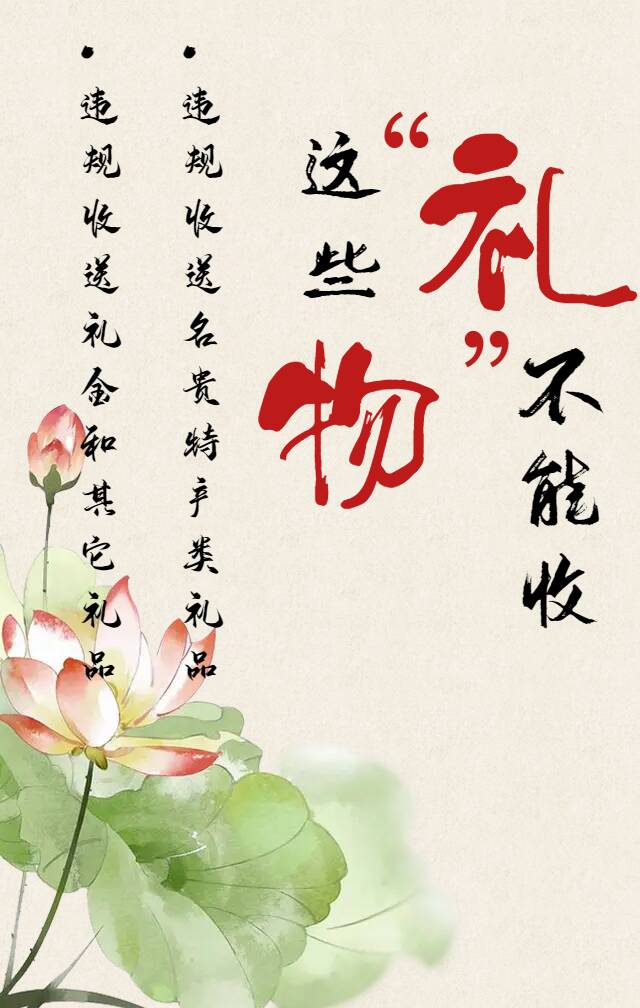 这些“礼”物不能收
• 违规收送名贵特产类礼品
• 违规收送礼金和其它礼品